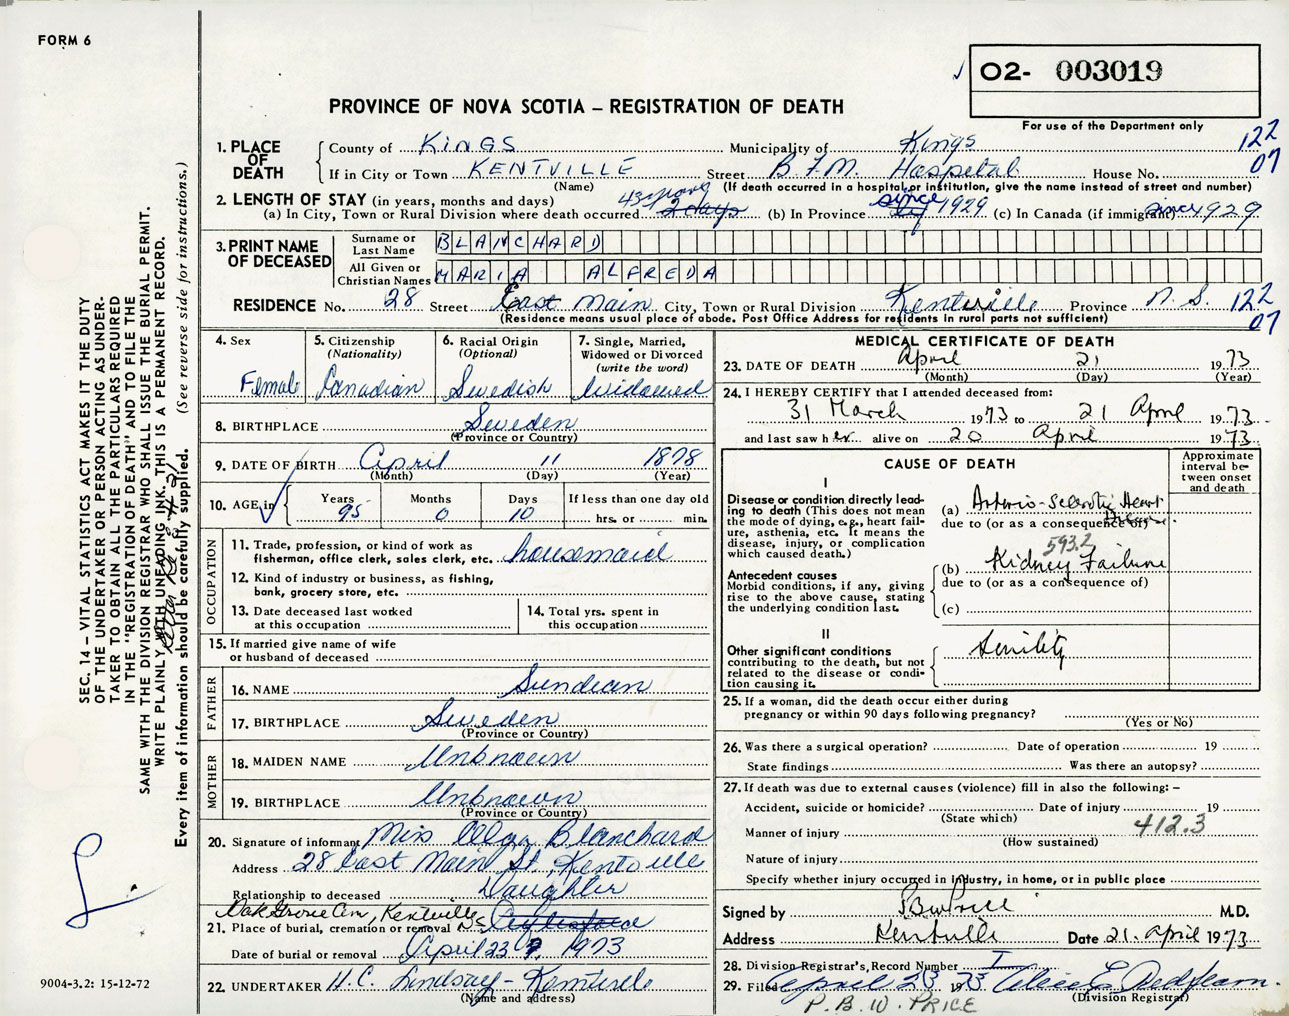 FORM 6
O2- 003019
PROVINCE OF NOVA SCOTIA – REGISTRATION OF DEATH
For use of the Department only
1. PLACE OF DEATH
County of KINGS Municipality of Kings 122
If in City or Town KENTVILLE Street B.F.M. Hospital House No. 07
(Name) (If death occurred in a hospital or institution, give the name instead of street and number)
2. LENGTH OF STAY (in years, months and days)
(a) In City, Town or Rural Division where death occurred 2 days (b) In Province since 1929 (c) In Canada (if immigrant) since 1929
3. PRINT NAME OF DECEASED
Surname or Last Name BLANCHARD
All Given or Christian Names MARIA ALFREDA
RESIDENCE No. 28 Street East Main City, Town or Rural Division Kentville Province N.S. 122
(Residence means usual place of abode. Post Office Address for residents in rural parts not sufficient) 07
4. Sex Female
5. Citizenship (Nationality) Canadian
6. Racial Origin (Optional) Swedish
7. Single, Married, Widowed or Divorced (write the word) Widowed
8. BIRTHPLACE Sweden
(Province or Country)
9. DATE OF BIRTH April 11 1878
(Month) (Day) (Year)
10. AGE in Years 95 Months 0 Days 10 If less than one day old
hrs. or min.
OCCUPATION
11. Trade, profession, or kind of work as fisherman, office clerk, sales clerk, etc. housemaid
12. Kind of industry or business, as fishing, bank, grocery store, etc.
13. Date deceased last worked at this occupation
14. Total yrs. spent in this occupation
15. If married give name of wife or husband of deceased
FATHER
16. NAME Sundean
17. BIRTHPLACE Sweden
(Province or Country)
MOTHER
18. MAIDEN NAME Unknown
19. BIRTHPLACE Unknown
(Province or Country)
20. Signature of informant Miss Olga Blanchard
Address 28 East Main St., Kentville
Relationship to deceased Daughter
Oak Grove Cem, Kentville NS
21. Place of burial, cremation or removal
Date of burial or removal April 23 1973
22. UNDERTAKER H.C. Lindsay - Kentville
(Name and address)
MEDICAL CERTIFICATE OF DEATH
23. DATE OF DEATH April 21 1973
(Month) (Day) (Year)
24. I HEREBY CERTIFY that I attended deceased from:
31 March 1973 to 21 April 1973
and last saw her alive on 20 April 1973
CAUSE OF DEATH
Approximate interval between onset and death
I
Disease or condition directly leading to death (This does not mean the mode of dying, e.g., heart failure, asthenia, etc. It means the disease, injury, or complication which caused death.)
(a) Arterio-Sclerotic Heart Disease
due to (or as a consequence of)
593.2
Antecedent causes
Morbid conditions, if any, giving rise to the above cause, stating the underlying condition last.
(b) Kidney Failure
due to (or as a consequence of)
(c)
II
Other significant conditions contributing to the death, but not related to the disease or condition causing it.
Senility
25. If a woman, did the death occur either during pregnancy or within 90 days following pregnancy?
(Yes or No)
26. Was there a surgical operation? Date of operation 19
State findings Was there an autopsy?
27. If death was due to external causes (violence) fill in also the following: –
Accident, suicide or homicide? Date of injury 19
(State which) 412.3
Manner of injury
(How sustained)
Nature of injury
Specify whether injury occurred in Industry, in home, or in public place
Signed by BW Price M.D.
Address Kentville Date 21. April 1973
28. Division Registrar's, Record Number
29. Filed April 23 1973 Alice E Redfearn.
(Division Registrar)
P. B. W. PRICE
SEC. 14 – VITAL STATISTICS ACT MAKES IT THE DUTY
OF THE UNDERTAKER OR PERSON ACTING AS UNDER-
TAKER TO OBTAIN ALL THE PARTICULARS REQUIRED
IN THE "REGISTRATION OF DEATH" AND TO FILE THE
SAME WITH THE DIVISION REGISTRAR WHO SHALL ISSUE THE BURIAL PERMIT.
WRITE PLAINLY WITH UNFADING INK. THIS IS A PERMANENT RECORD.
Every item of information should be carefully supplied. (See reverse side for instructions.)
9004-3.2: 15-12-72